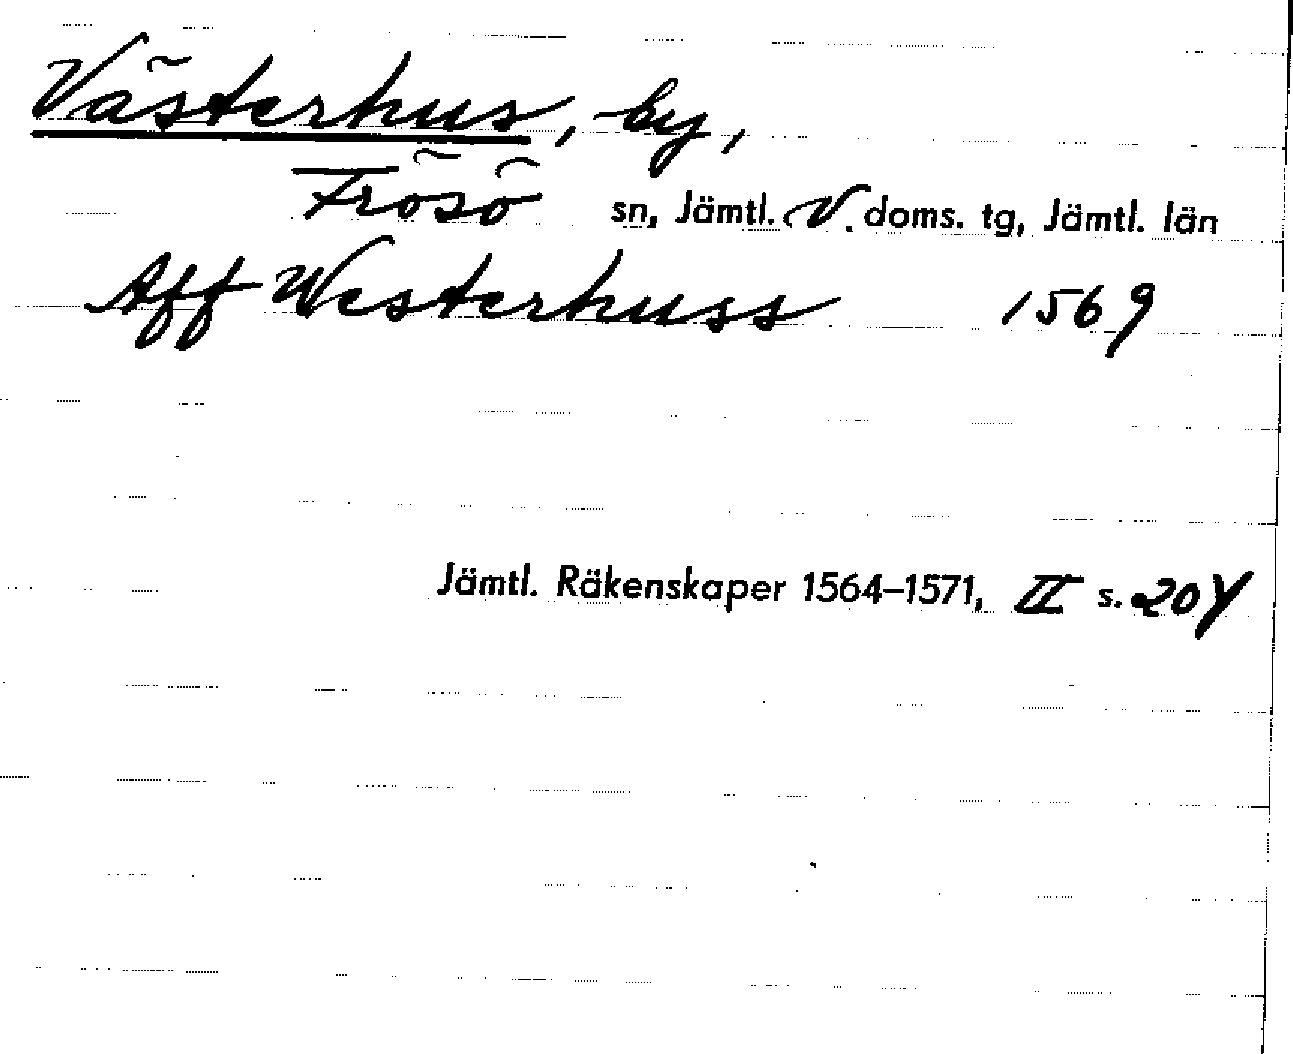 Västerhus, by,
Frösö sn, Jämtl. V. doms. tg, Jämtl. län
Aff Westerhuss 1569
Jämtl. Räkenskaper 1564–1571, II s. 204